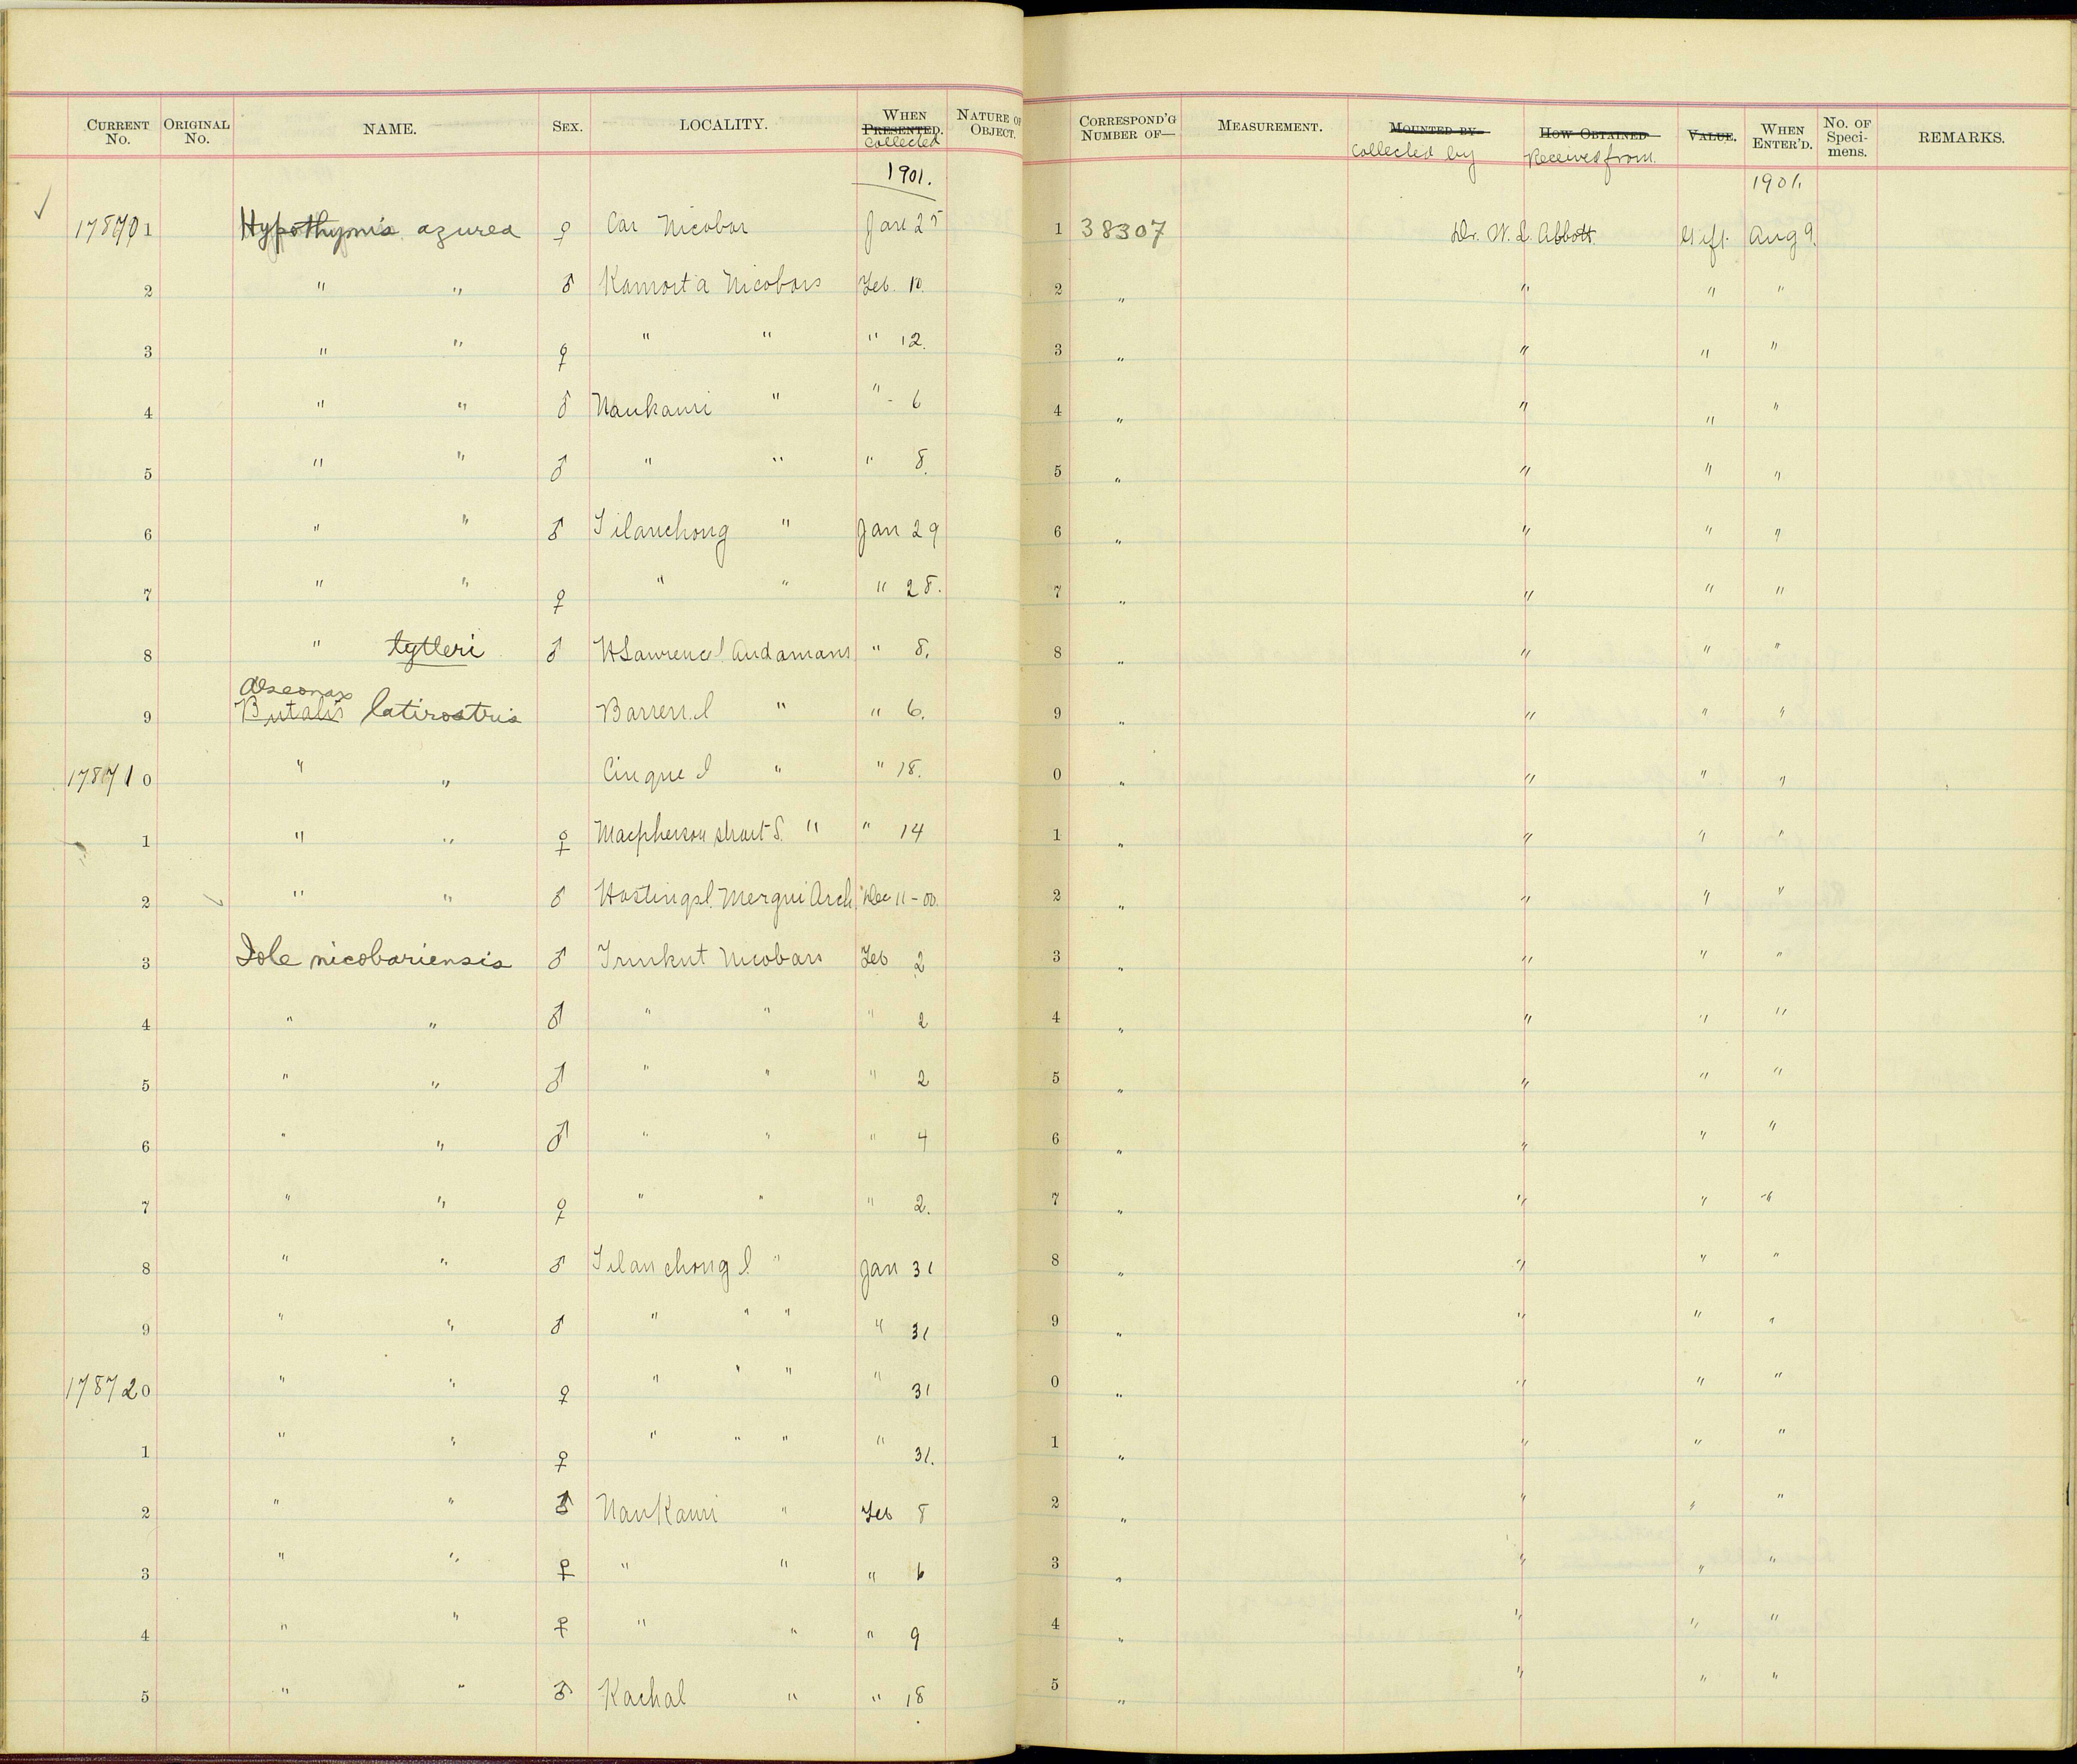 CURRENT No. ORIGINAL No. NAME. SEX. LOCALITY. WHEN PRESENTED. collected NATURE OF OBJECT. CORRESPOND'G NUMBER OF— MEASUREMENT. MOUNTED BY collected by HOW OBTAINED Received from. VALUE. WHEN ENTER'D. No. OF Speci-mens. REMARKS.
1901. 1901.
178701 Hypothymis azurea ♀ Car Nicobar Jan 25 1 38307 Dr. W. L. Abbott Gift. Aug 9.
2 " " ♂ Kamorta Nicobars Feb. 10. 2 " " " "
3 " " ♀ " " " 12. 3 " " " "
4 " " ♂ Naukauri " " 6 4 " " " "
5 " " ♂ " " " 8. 5 " " " "
6 " " ♂ Tilanchong " Jan 29 6 " " " "
7 " " ♀ " " " 28. 7 " " " "
8 " tytleri ♂ H Lawrence I. Andamans " 8. 8 " " " "
Alseonax
9 Butalis latirostris Barren I " " 6. 9 " " " "
178710 " " Cinque I " " 18. 0 " " " "
1 " " ♀ Macpherson strait S. " " 14 1 " " " "
2 " " ♂ Hastings I. Mergui Arch Dec 11-00. 2 " " " "
3 Iole nicobariensis ♂ Trinkut Nicobars Feb 2 3 " " " "
4 " " ♂ " " " 2 4 " " " "
5 " " ♂ " " " 2 5 " " " "
6 " " ♂ " " " 4 6 " " " "
7 " " ♀ " " " 2. 7 " " " "
8 " " ♂ Tilanchong I. " Jan 31 8 " " " "
9 " " ♂ " " " " 31 9 " " " "
178720 " " ♀ " " " " 31 0 " " " "
1 " " ♀ " " " " 31. 1 " " " "
2 " " ♂ Naukauri " Feb 8 2 " " " "
3 " " ♀ " " " 6 3 " " " "
4 " " ♀ " " " 9 4 " " " "
5 " " ♂ Kachal " " 18 5 " " " "